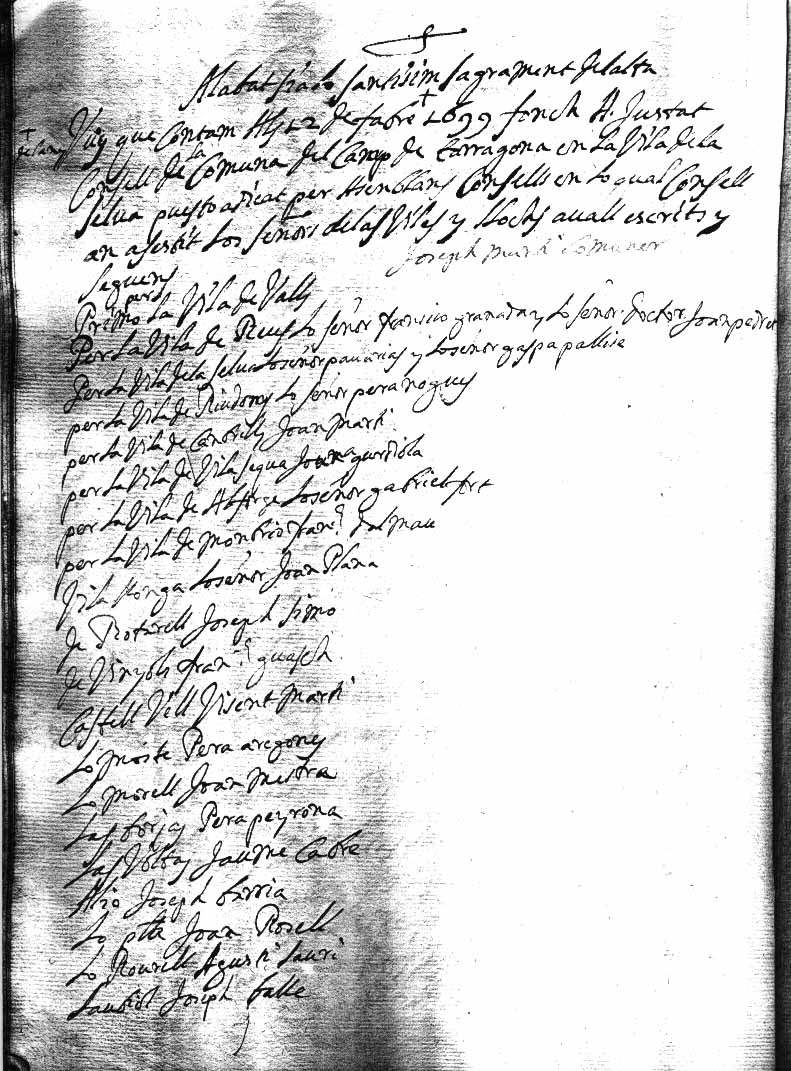 Alabat sia lo santisim sagrament del alta
Vuy que Contam Als 12 de fabre 1699 fonch A. Justat
Consell de la Comuna del Camp de tarragona en la Vila de la
selva puesto asicat per Asemblans Consells en lo qual Consell
an asestit los señors de las Viles y llochs avall escrits y
seguens
Joseph marti Comuner
Primo per la Vila de Valls
Per la Vila de Reus lo señor fransisco granada y lo señor Doctor Joan pedret
Per la Vila de la selva lo señor pau arias y lo señor gaspa pallise
per la Vila de Riudoms lo señor pera nogues
per la Vila de Cambrils Joan marti
per la Vila de Vilasequa Joan guardiola
per la Vila de Alforge lo señor gabriel fort
per la Vila de monbrio fran. dalmau
Vila llonga lo señor Joan Plana
de Rotarell Joseph simo
de Vinyols fran. guasch
Castell Vell Visent marti
Lo moste Pera aragones
Lo morell Joan mestra
Las borjas Pera peyrona
Las Voltas Jaume Cabre
Alio Joseph farria
Lo pla Joan Rosell
Lo Rourell Agusti
Joseph balle